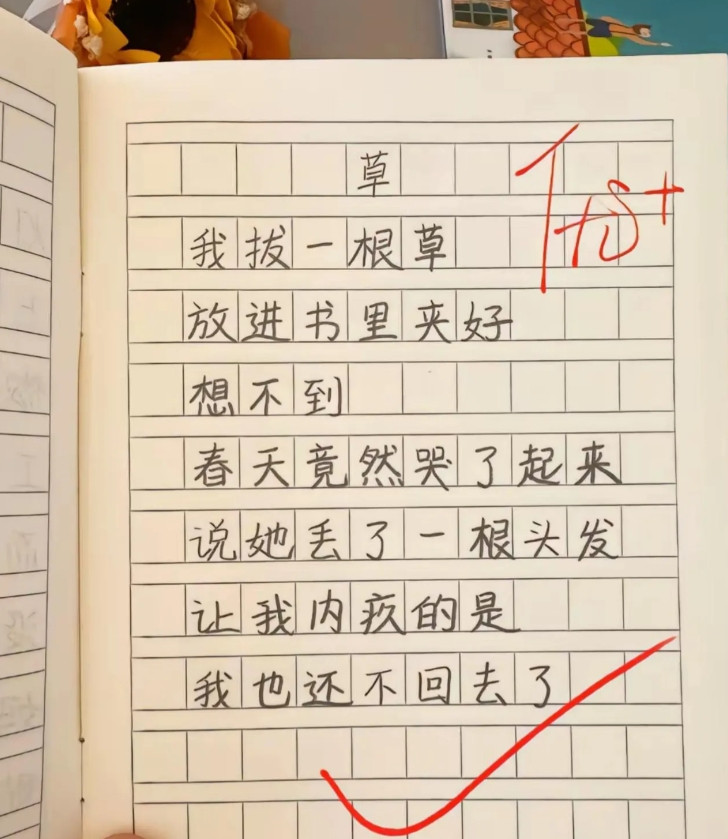 草
我拔一根草
放进书里夹好
想不到
春天竟然哭了起来
说她丢了一根头发
让我内疚的是
我也还不回去了
优+